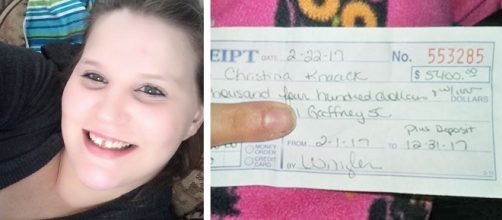 EIPT DATE 2-22-17 No. 553285
Christina Knaack $ 5400.00
housand four hundred dollars
DOLLARS
Gaffney SC
plus Deposit
FROM 2-1-17 TO 12-31-17
MONEY ORDER
CREDIT CARD
BY